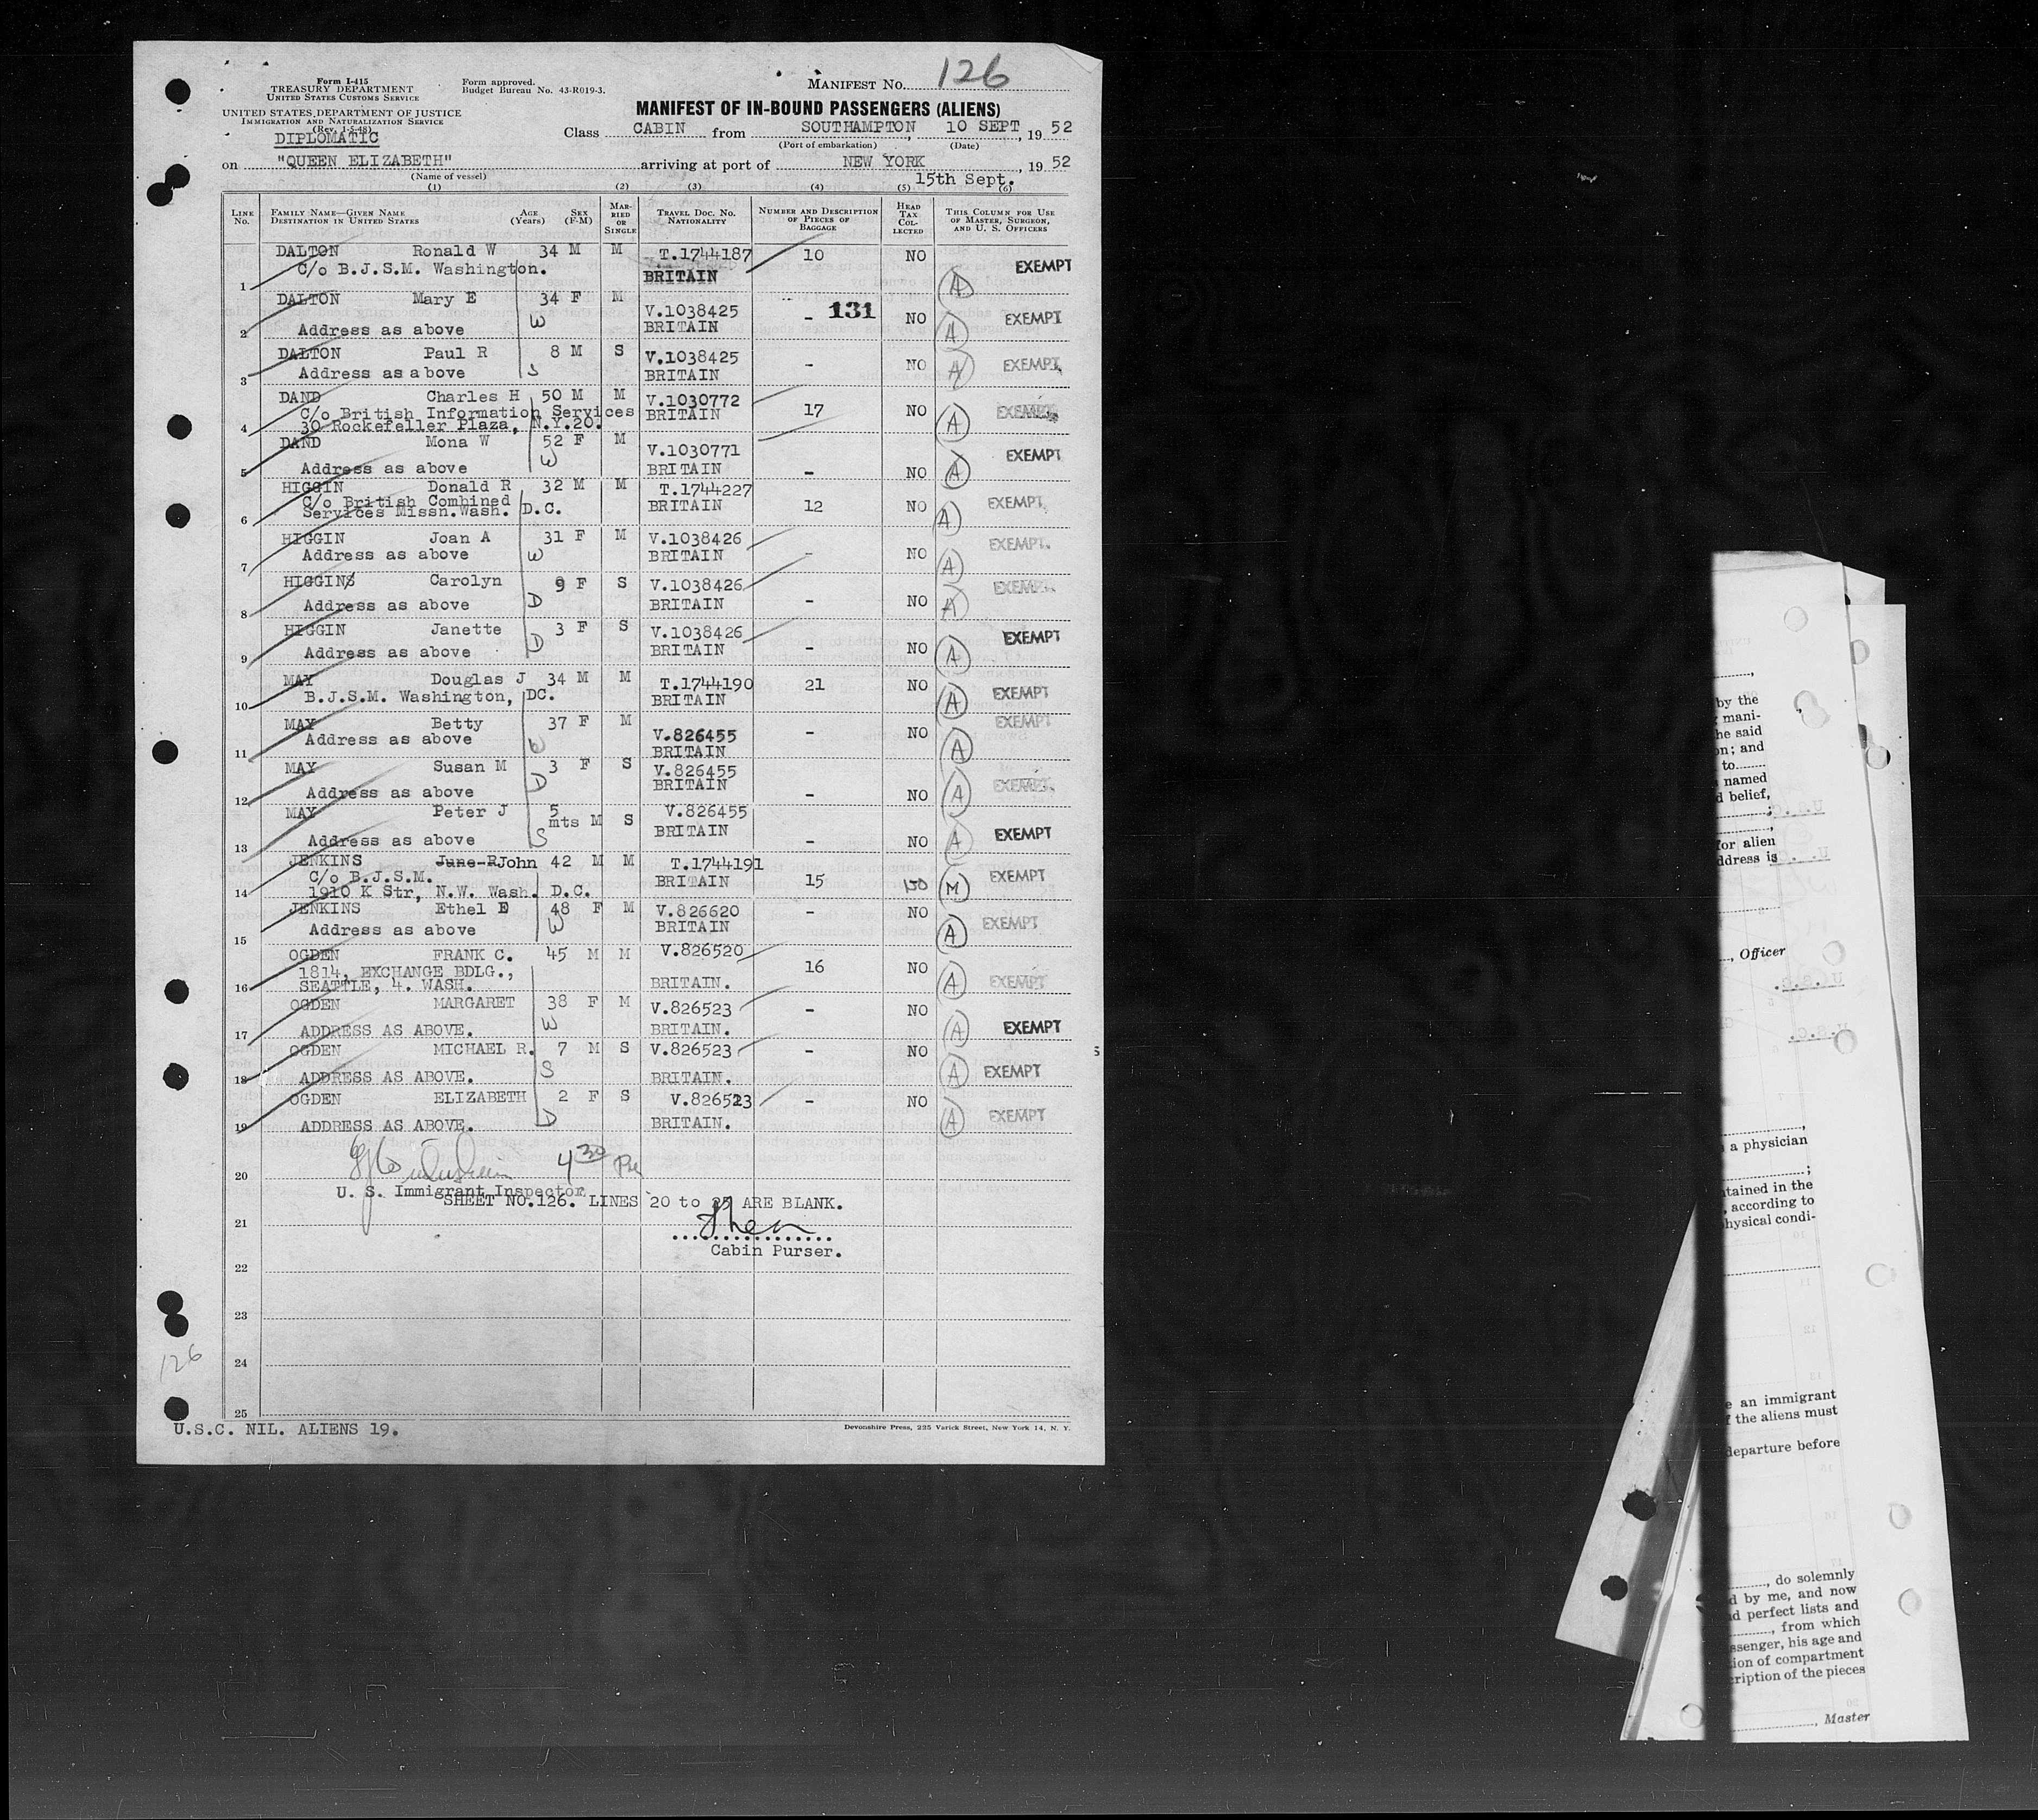 Form I-415
TREASURY DEPARTMENT
UNITED STATES CUSTOMS SERVICE
Form approved.
Budget Bureau No. 43-R019-3.
MANIFEST No. 126
UNITED STATES DEPARTMENT OF JUSTICE
IMMIGRATION AND NATURALIZATION SERVICE
(Rev. 1-5-48)
DIPLOMATIC
MANIFEST OF IN-BOUND PASSENGERS (ALIENS)
Class CABIN from SOUTHAMPTON, 10 SEPT, 19 52
(Port of embarkation) (Date)
on "QUEEN ELIZABETH" arriving at port of NEW YORK, 19 52
(Name of vessel) 15th Sept.
(1) (2) (3) (4) (5) (6)
LINE No. FAMILY NAME—GIVEN NAME DESTINATION IN UNITED STATES AGE (Years) SEX (F-M) MARRIED OR SINGLE TRAVEL DOC. NO. NATIONALITY NUMBER AND DESCRIPTION OF PIECES OF BAGGAGE HEAD TAX COLLECTED THIS COLUMN FOR USE OF MASTER, SURGEON, AND U. S. OFFICERS
DALTON Ronald W 34 M M T.1744187 10 NO EXEMPT
1 C/o B.J.S.M. Washington. BRITAIN A
DALTON Mary E 34 F M V.1038425 - 131 NO EXEMPT
2 Address as above W BRITAIN A
DALTON Paul R 8 M S V.1038425 - NO EXEMPT
3 Address as above S BRITAIN A
DAND Charles H 50 M M V.1030772 17 NO EXEMPT
C/o British Information Services BRITAIN A
4 30 Rockefeller Plaza, N.Y.20.
DAND Mona W 52 F M V.1030771 - NO EXEMPT
5 Address as above W BRITAIN A
HIGGIN Donald R 32 M M T.1744227 12 NO EXEMPT
C/o British Combined BRITAIN A
6 Services Missn.Wash. D.C.
HIGGIN Joan A 31 F M V.1038426 - NO EXEMPT.
7 Address as above W BRITAIN A
HIGGINS Carolyn 9 F S V.1038426 - NO EXEMPT
8 Address as above D BRITAIN A
HIGGIN Janette 3 F S V.1038426 - NO EXEMPT
9 Address as above D BRITAIN A
MAY Douglas J 34 M M T.1744190 21 NO EXEMPT
10 B.J.S.M. Washington, DC. BRITAIN A
MAY Betty 37 F M V.826455 - NO EXEMPT
11 Address as above W BRITAIN A
MAY Susan M 3 F S V.826455 - NO EXEMPT
12 Address as above D BRITAIN A
MAY Peter J 5 mts M S V.826455 - NO EXEMPT
13 Address as above S BRITAIN A
JENKINS June R John 42 M M T.1744191 15 EXEMPT
C/o B.J.S.M. BRITAIN M
14 1910 K Str, N.W. Wash. D.C.
JENKINS Ethel E 48 F M V.826620 - NO EXEMPT
15 Address as above W BRITAIN A
OGDEN FRANK C. 45 M M V.826520 16 NO EXEMPT
1814, EXCHANGE BDLG., A
16 SEATTLE, 4. WASH. BRITAIN.
OGDEN MARGARET 38 F M V.826523 - NO EXEMPT
17 ADDRESS AS ABOVE. W BRITAIN. A
OGDEN MICHAEL R. 7 M S V.826523 - NO EXEMPT
18 ADDRESS AS ABOVE. S BRITAIN. A
OGDEN ELIZABETH 2 F S V.826523 - NO EXEMPT
19 ADDRESS AS ABOVE. D BRITAIN. A
20 4 30 PM
U. S. Immigrant Inspector
SHEET NO.126. LINES 20 to 25 ARE BLANK.
21
Cabin Purser.
22
23
24
25
126
U.S.C. NIL. ALIENS 19.
Devonshire Press, 225 Varick Street, New York 14, N. Y.
by the
mani-
he said
on; and
to
named
d belief,
for alien
ddress is
, Officer
a physician
ntained in the
, according to
hysical condi-
e an immigrant
f the aliens must
departure before
, do solemnly
d by me, and now
nd perfect lists and
, from which
ssenger, his age and
tion of compartment
cription of the pieces
, Master